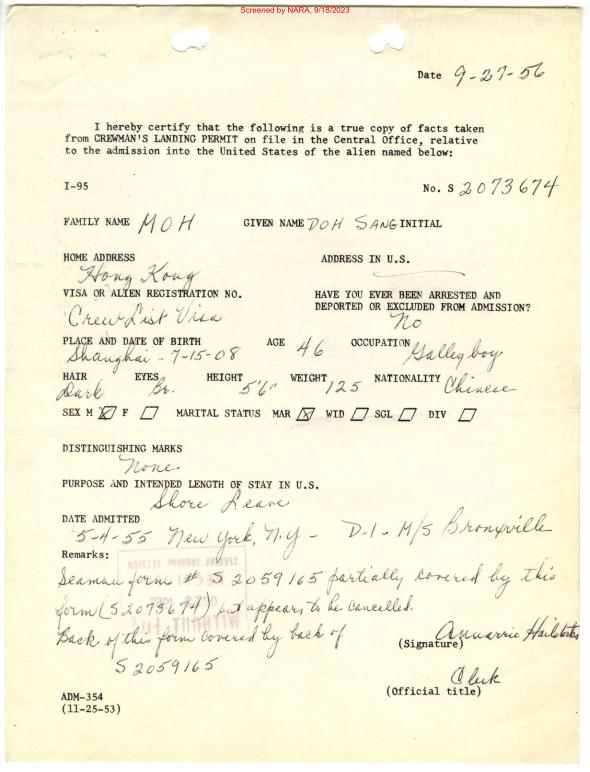 Screened by NARA, 9/18/2023
Date 9-27-56
I hereby certify that the following is a true copy of facts taken
from CREWMAN'S LANDING PERMIT on file in the Central Office, relative
to the admission into the United States of the alien named below:
I-95 No. S 2073674
FAMILY NAME MOH GIVEN NAME DOH SANG INITIAL
HOME ADDRESS ADDRESS IN U.S.
Hong Kong
VISA OR ALIEN REGISTRATION NO. HAVE YOU EVER BEEN ARRESTED AND
DEPORTED OR EXCLUDED FROM ADMISSION?
Crew List Visa No
PLACE AND DATE OF BIRTH AGE 46 OCCUPATION
Shanghai - 7-15-08 Galley boy
HAIR EYES HEIGHT WEIGHT NATIONALITY
Dark Br. 5'6" 125 Chinese
SEX M F MARITAL STATUS MAR WID SGL DIV
DISTINGUISHING MARKS
None
PURPOSE AND INTENDED LENGTH OF STAY IN U.S.
Shore Leave
DATE ADMITTED
5-4-55 New York, N.Y - D-1 - M/S Bronxville
Remarks:
Seaman form # S 2059165 partially covered by this
form (S2073674) but appears to be cancelled.
Back of this form covered by back of
S2059165
(Signature)
Clerk
(Official title)
ADM-354
(11-25-53)